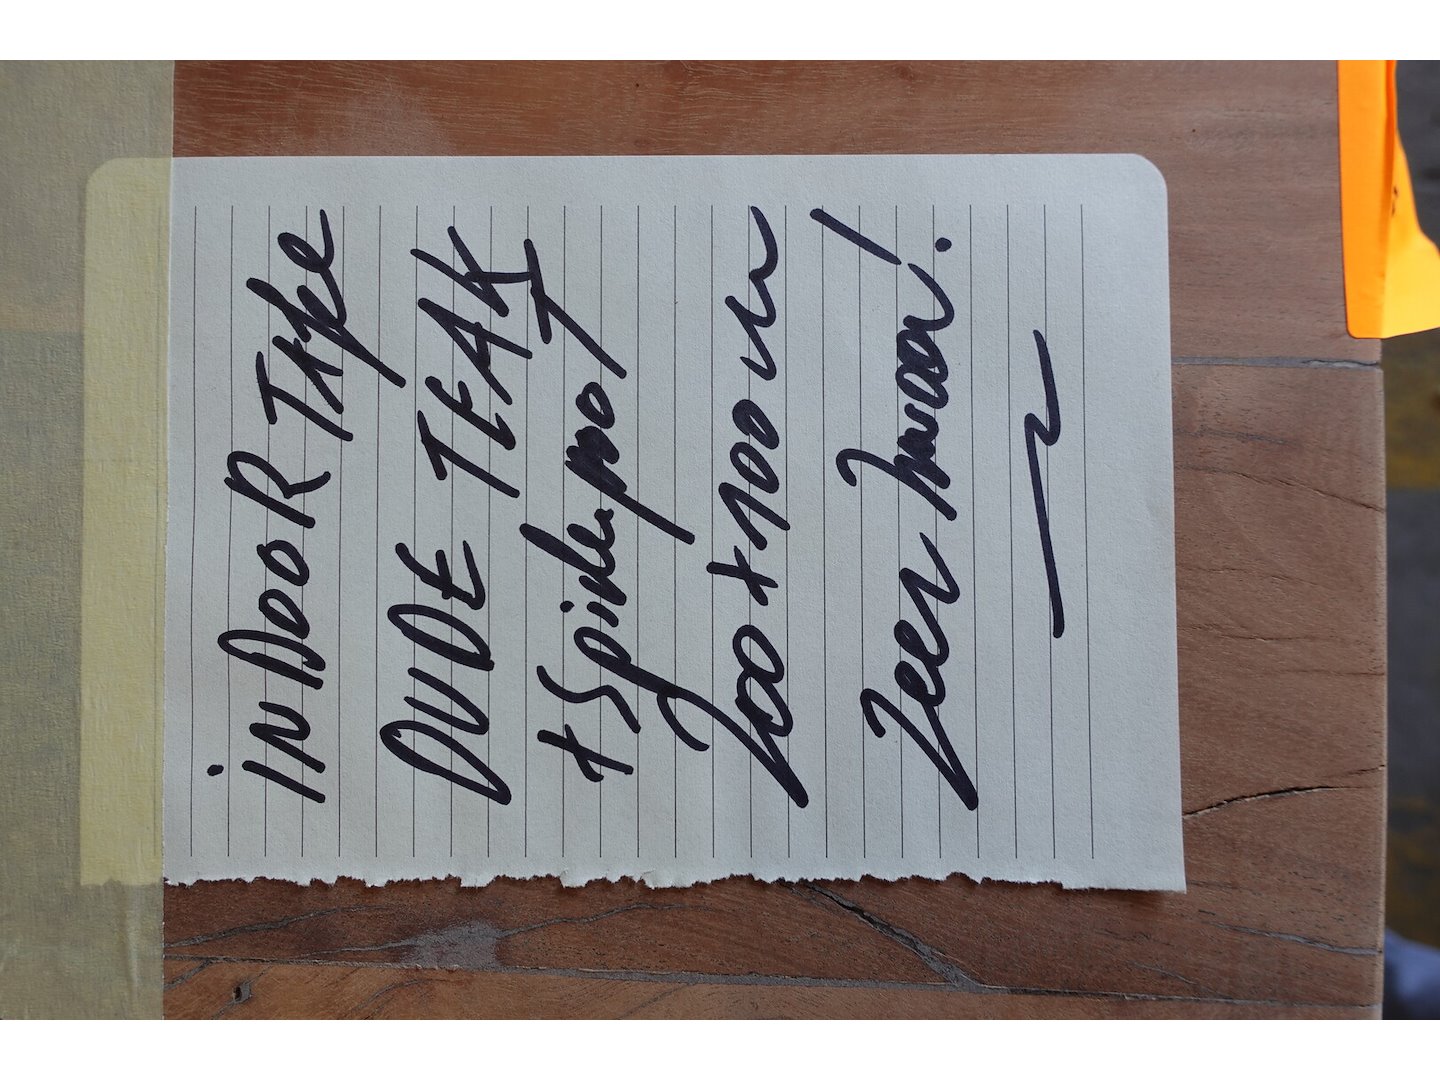 iNDOOR TAfel
OUDE TEAK
+ Spiderpoot
200 x 100 cm
Zeer zwaar!